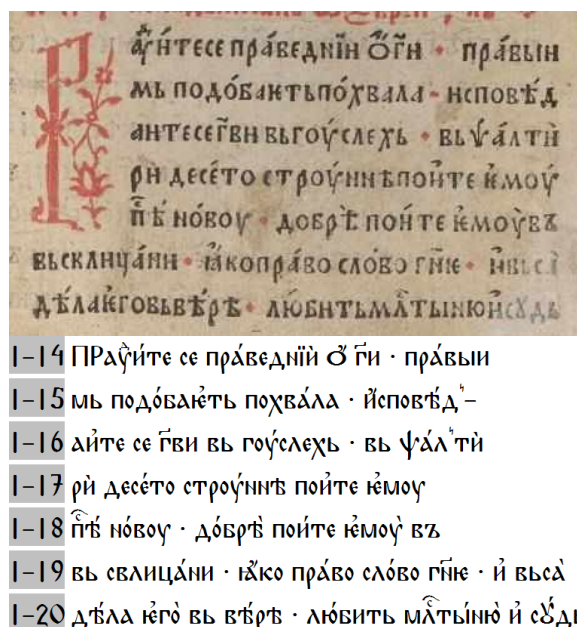 Раꙋ́и́тесе пра́веднїи ѻ҆́ г҃и · пра́выи
мь подо́баѥтьпо́хвала · исповѣ́д
аитесег҃ви вьгоу́слехь · вь ѱа́лтѝ
рѝ десе́то строу́ннѣпои́те ѥ҆моу́
пⷭ҇ѣ́ но́воу · добрѣ̀ пои́те ѥ҆моу̀въ
вьсклица́ни · ꙗ҆копра́во сло́во гн҃ѥ · и҆вьса̀
дѣ́лаѥ҆говьвѣ́рѣ · лю́битьмлⷭ҇тынюи҆сꙋдь
1-14 ПРаꙋ̀и́те се пра́веднїѝ ѻ҆́ г҃и · пра́выи
1-15 мь подо́баѥ҆ть похва́ла · и҆́сповѣ́д꙽-
1-16 аи҆́те се г҃ви вь гоу́слехь · вь ѱа́л꙽тѝ
1-17 рѝ десе́то строу́ннѣ пои҆́те ѥ҆́моу
1-18 пⷭ҇ѣ́ но́воу · до́брѣ̀ пои́те ѥ҆́моу̀ въ
1-19 вь свлица́ни · ꙗ҆́ко пра́во сло́во гн҃ѥ · и҆̀ вьса̀
1-20 дѣ́ла ѥ҆го̀ вь вѣ́рѣ · лю́бить млⷭ҇ты́ню̀ и҆̀ сꙋ́дь